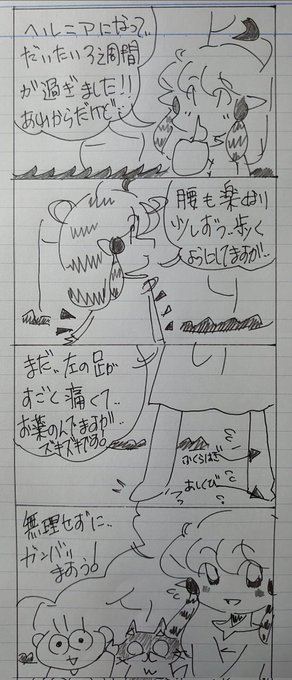 ヘルニアになって..
だいたい3週間
が過ぎました!!
腰も楽になり
少しずつ..歩く
ようにしてますが..
まだ、左の足が
すごく痛くて..
お薬のんでますが..
ズキズキです。
ふくらはぎ
あしくび
無理せずに..
ガンバり
ましょう!